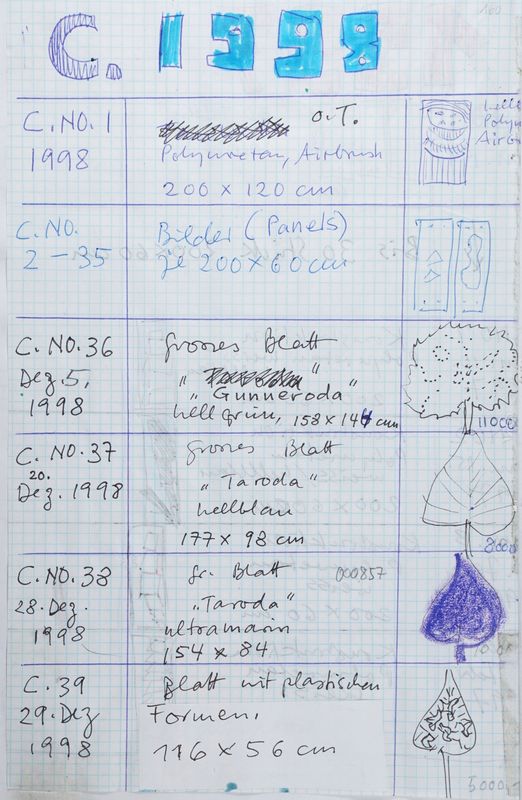 160
C. 1998
C.NO.1
1998
o.T.
Polyuretan, Airbrush
200 x 120 cm
C.NO.
2-35
Bilder (Panels)
je 200x60cm
C.NO.36
Dez 5,
1998
grosses Blatt
"Gunneroda"
hellgrün, 158x144 cm
11000
C.NO.37
20.
Dez. 1998
grosses Blatt
"Taroda"
hellblau
177 x 98 cm
8000
C.NO.38
28. Dez.
1998
gr. Blatt
000857
"Taroda"
ultramarin
154 x 84
C. 39
29. Dez
1998
Blatt mit plastischen
Formen,
116 x 56 cm
5000,-